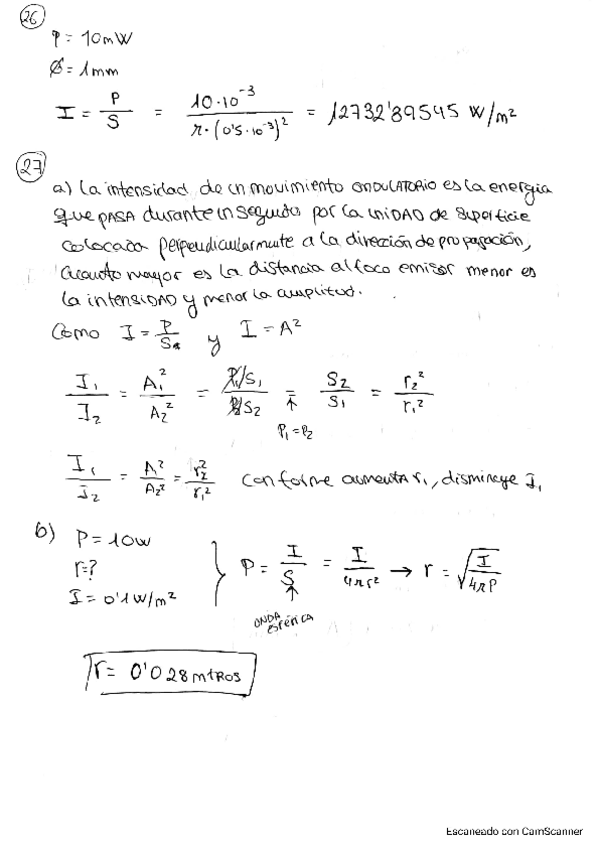 26
P = 10mW
Ø = 1mm
I = P/S = 10·10^-3 / π·(0'5·10^-3)^2 = 12732'89545 W/m²
27
a) La intensidad de un movimiento ONDULATORIO es la energía
que PASA durante un segundo por la UNIDAD de Superficie
colocada perpendicularmente a la dirección de propagación,
cuanto mayor es la distancia al foco emisor menor es
la intensidad y menor la amplitud.
Como I = P/S y I = A²
I₁/I₂ = A₁²/A₂² = P₁/S₁ / P₂/S₂ = S₂/S₁ = r₂²/r₁²
P₁ = P₂
I₁/I₂ = A₁²/A₂² = r₂²/r₁² conforme aumenta r₁, disminuye I₁
b) P = 10W
r = ?
I = 0'1 W/m²
P = I/S = I/4πr² → r = √(I/4πP)
ONDA
esférica
r = 0'028 mtros
Escaneado con CamScanner